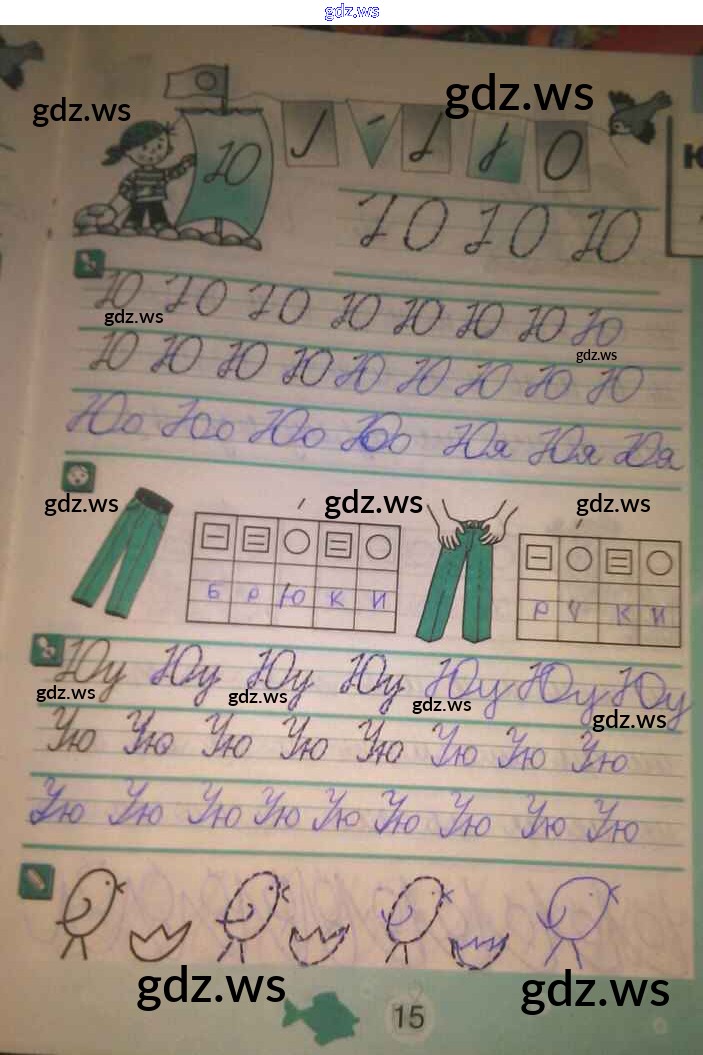 gdz.ws
gdz.ws gdz.ws
Ю О
Ю Ю Ю
Ю Ю Ю Ю Ю Ю Ю Ю
gdz.ws
gdz.ws
Ю Ю Ю Ю Ю Ю Ю Ю Ю
Юо Юо Юо Юо Юя Юя Юя
gdz.ws gdz.ws gdz.ws
Б Р Ю К И Р У К И
Юу Юу Юу Юу Юу Юу Юу
gdz.ws gdz.ws gdz.ws gdz.ws
Ую Ую Ую Ую Ую Ую Ую Ую
Ую Ую Ую Ую Ую Ую Ую Ую Ую
gdz.ws gdz.ws
15